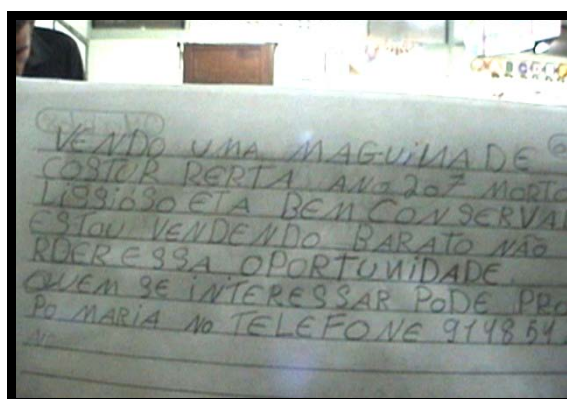 VENDO UMA MAGUiNA DE
COSTUR RERTA ANO 207 MORTO
LiSSiOSO ETA BEM CONSERVA
ESTOU VENDENDO BARATO NÃO
RDER ESSA OPORTUNiDADE.
QUEM SE iNTERESSAR PODE PRO
PO MARIA NO TELEFONE 919851